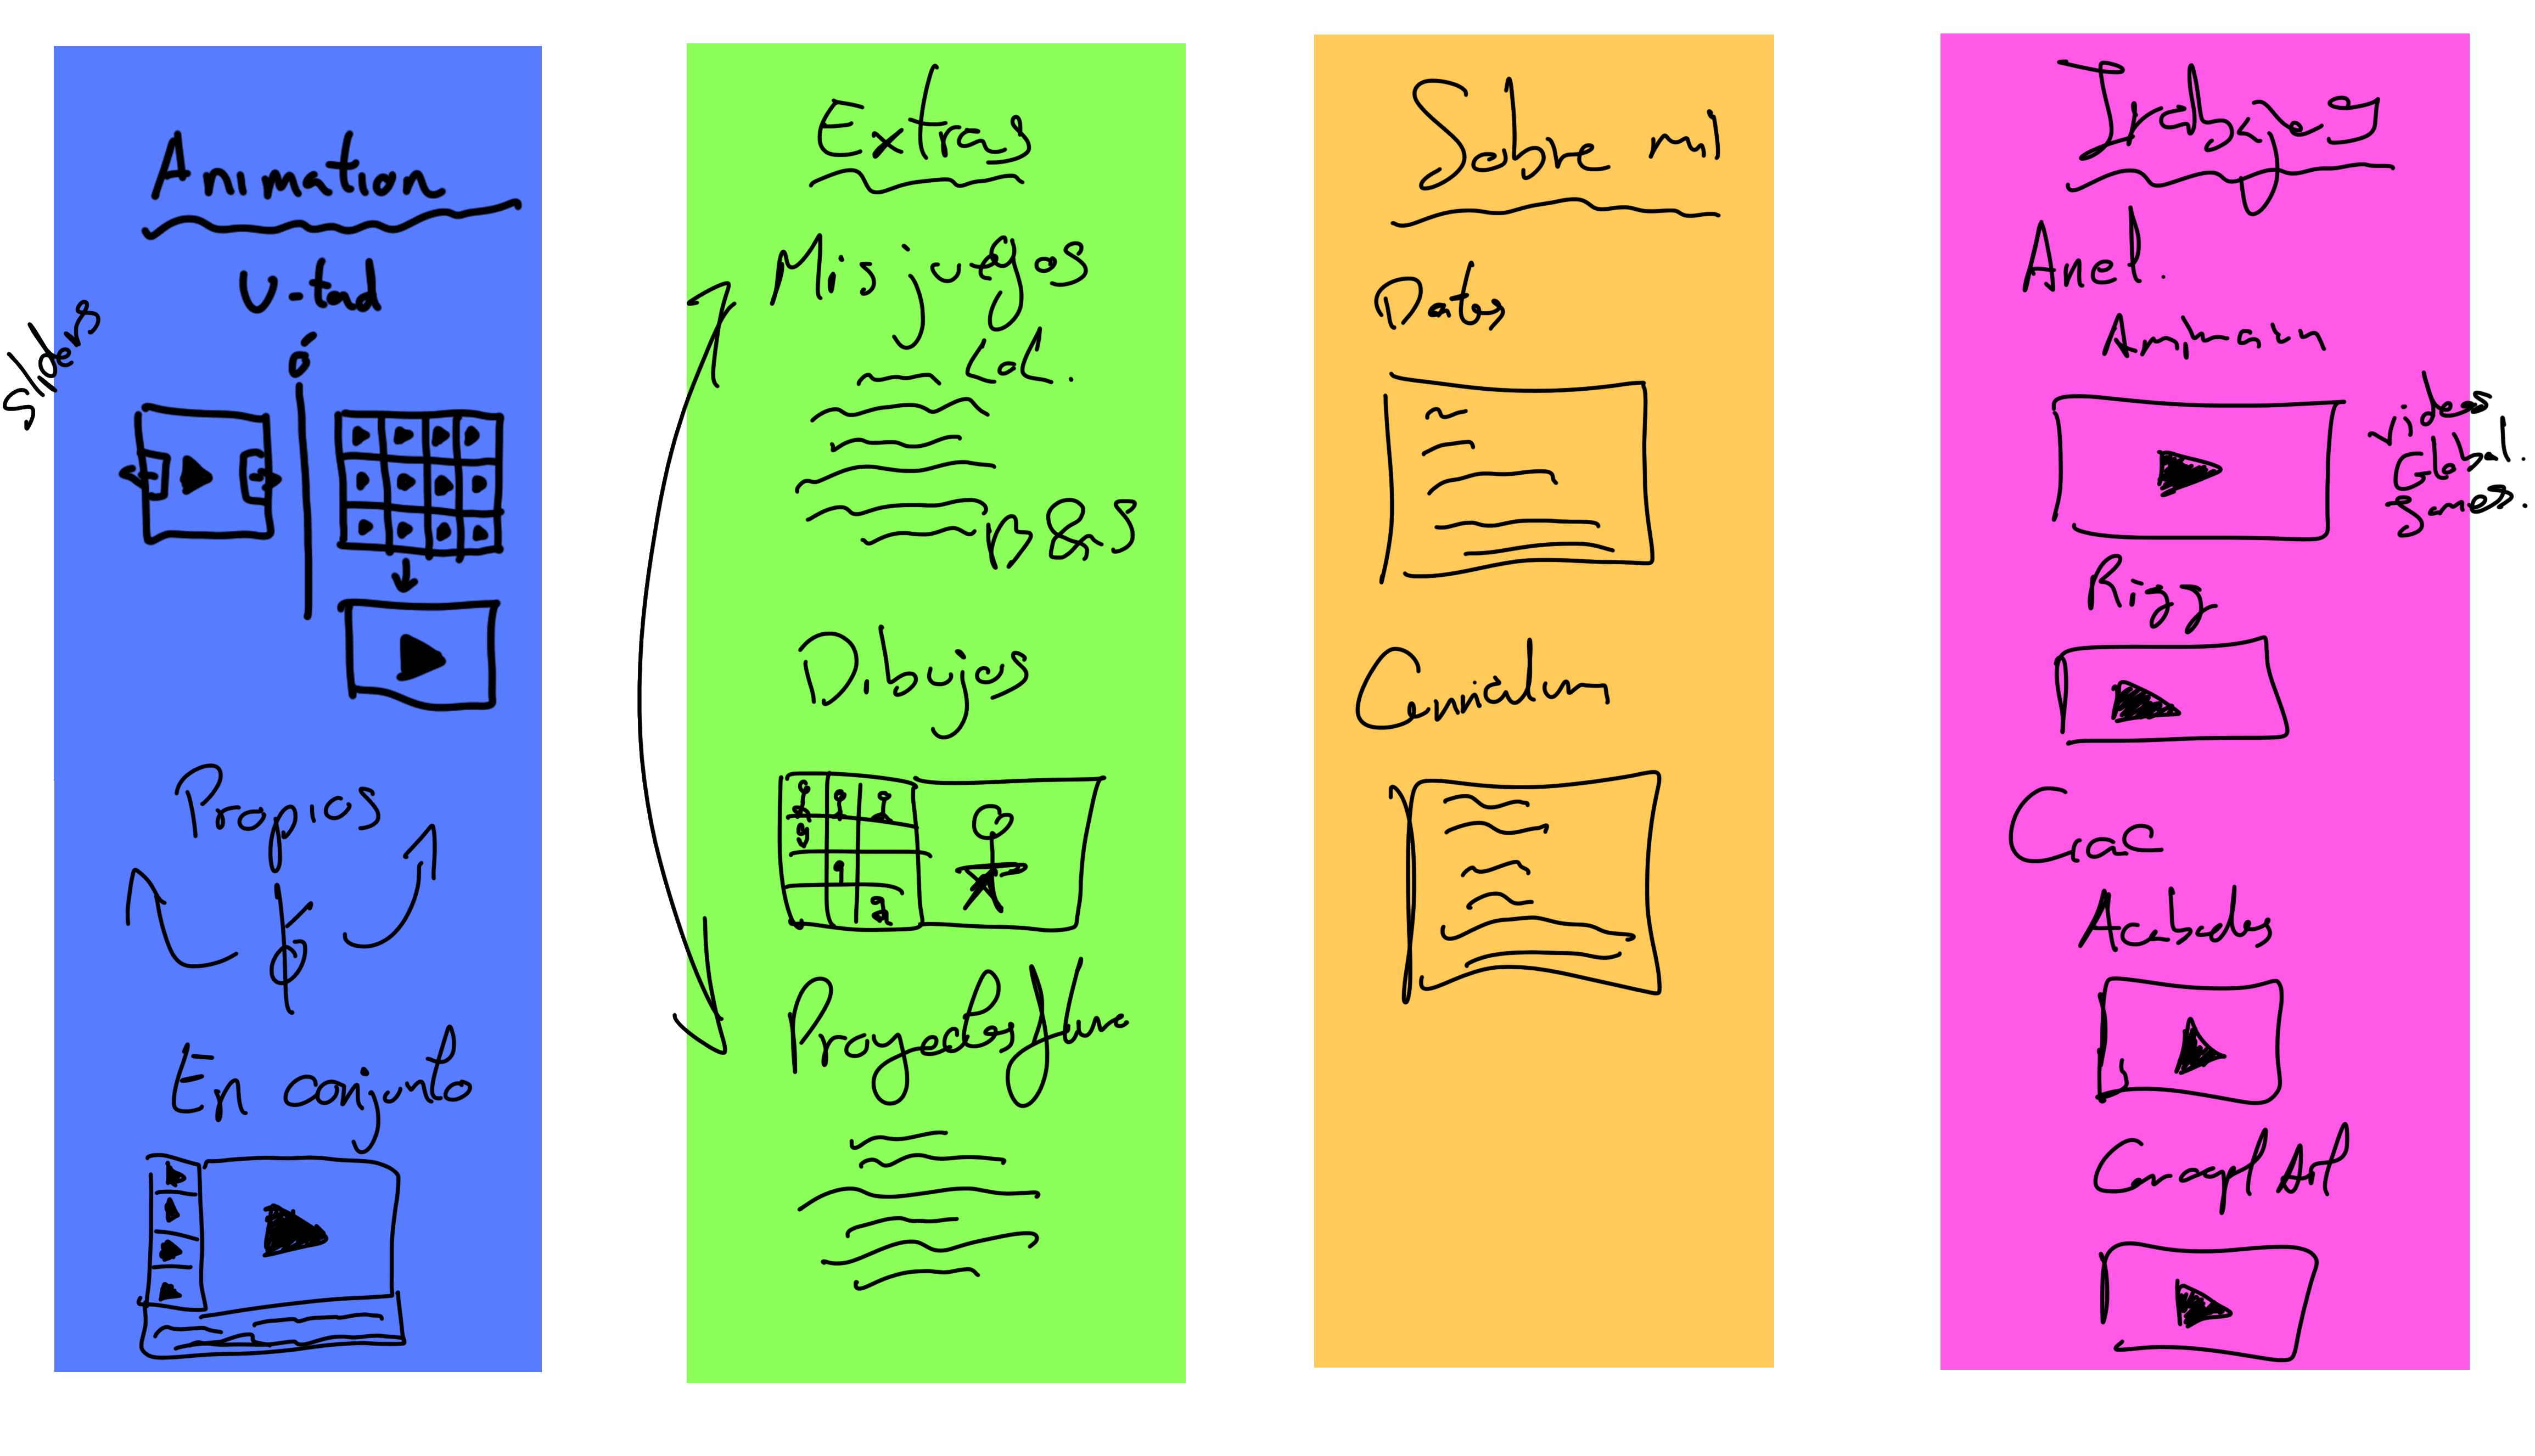 Animation
U-tad
ó
sliders
Propios
En conjunto
Extras
Mis juegos
LoL.
B&S
Dibujos
Proyectos
Sobre mi
Datos
Curriculum
Trabajos
Anel.
videos
Global.
games.
Rigg
Acabados
Concept Art